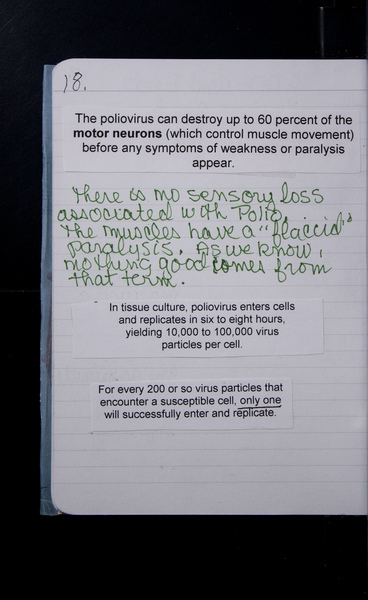 18.
The poliovirus can destroy up to 60 percent of the
motor neurons (which control muscle movement)
before any symptoms of weakness or paralysis
appear.
There is no sensory loss
associated with Polio.
The muscles have a "flaccid"
paralysis. As we know,
nothing good comes from
that term.
In tissue culture, poliovirus enters cells
and replicates in six to eight hours,
yielding 10,000 to 100,000 virus
particles per cell.
For every 200 or so virus particles that
encounter a susceptible cell, only one
will successfully enter and replicate.